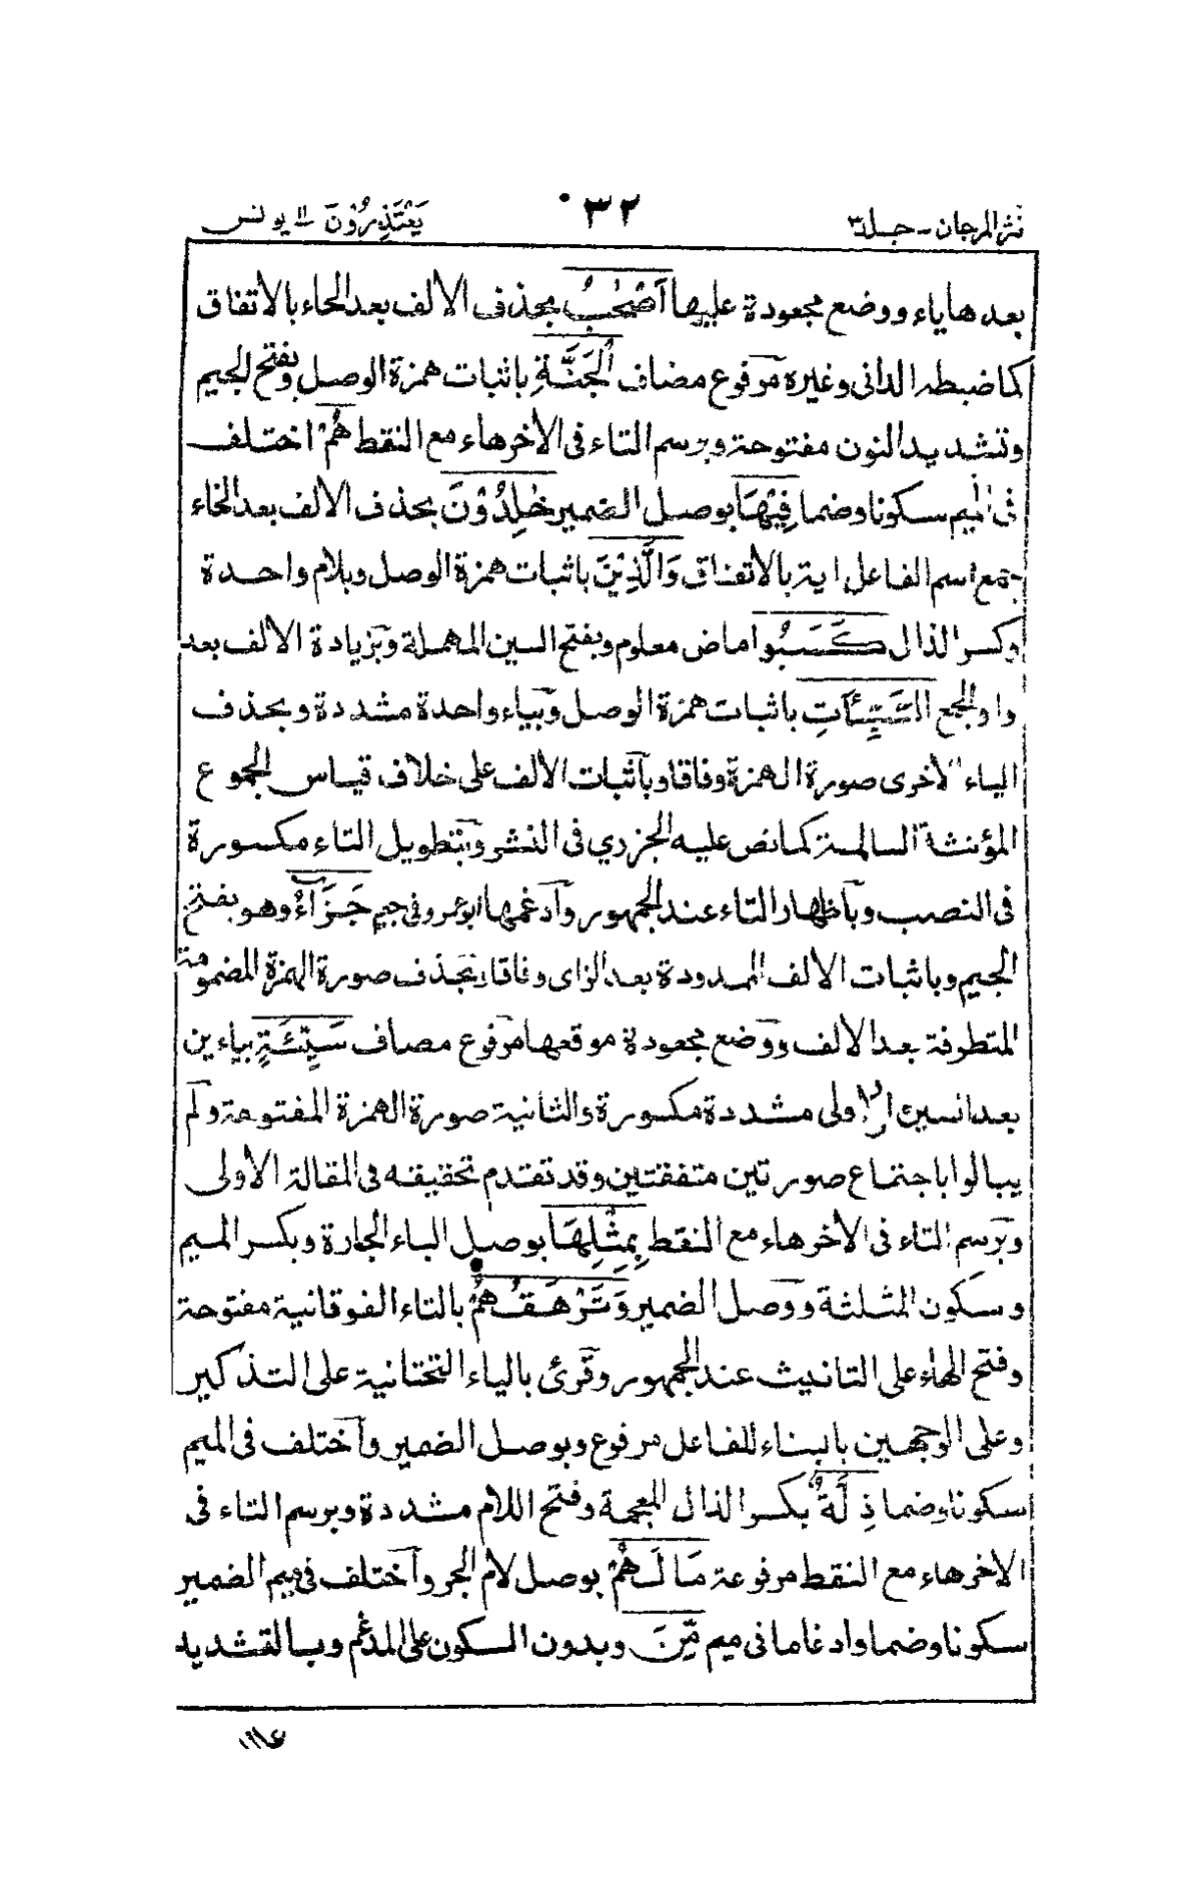 نثر المرجان - جلد ٣
٣٢٠
يَعْتَذِرُوْنَ ١١ يونس
بعدها ياء ووضع مجعودة عليها اَصْحٰبُ بحذف الالف بعد الحاء بالاتفاق
كما ضبطه الدانى وغيره مرفوع مضاف الْجَنَّةِ باثبات همزة الوصل وبفتح الجيم
وتشديد النون مفتوحة وبرسم التاء فى الأخر هاء مع النقط هُمْ اختلف
فى الميم سكونا وضما فِيْهَا بوصل الضمير خٰلِدُوْنَ بحذف الالف بعد الخاء
جمع اسم الفاعل اية بالاتفاق وَالَّذِيْنَ باثبات همزة الوصل وبلام واحدة
وكسر الذال كَسَبُوا ماض معلوم وبفتح السين المهملة وبزيادة الالف بعد
واو الجمع السَّيِّئَاتِ باثبات همزة الوصل وبياء واحدة مشددة وبحذف
الياء الاخرى صورة الهمزة وفاقا وباثبات الالف على خلاف قياس الجموع
المؤنثة السالمة كما نص عليه الجزري فى النشر وبتطويل التاء مكسورة
فى النصب وباظهار التاء عند الجمهور وادغمها ابو عمرو فى جيم جَزَاءُ وهو بفتح
الجيم وباثبات الالف الممدودة بعد الزاى وفاقا وبحذف صورة الهمزة المضمومة
المتطرفة بعد الالف ووضع مجعودة موقعها مرفوع مضاف سَيِّئَةٍ بياءين
بعد السين الاولى مشددة مكسورة والثانية صورة الهمزة المفتوحة ولم
يبالوا باجتماع صورتين متفقتين وقد تقدم تحقيقه فى المقالة الاولى
وبرسم التاء فى الأخر هاء مع النقط بِمِثْلِهَا بوصل الباء الجارة وبكسر الميم
وسكون المثلثة ووصل الضمير وَتَرْهَقُهُمْ بالتاء الفوقانية مفتوحة
وفتح الهاء على التانيث عند الجمهور وقرئ بالياء التحتانية على التذكير
وعلى الوجهين بالبناء للفاعل مرفوع وبوصل الضمير واختلف فى الميم
سكونا وضما ذِلَّةٌ بكسر الذال المعجمة وفتح اللام مشددة وبرسم التاء فى
الاخر هاء مع النقط مرفوعة مَا لَهُمْ بوصل لام الجر واختلف فى ميم الضمير
سكونا وضما وادغاما فى ميم مِّنَ وبدون السكون على المدغم وبالتشديد